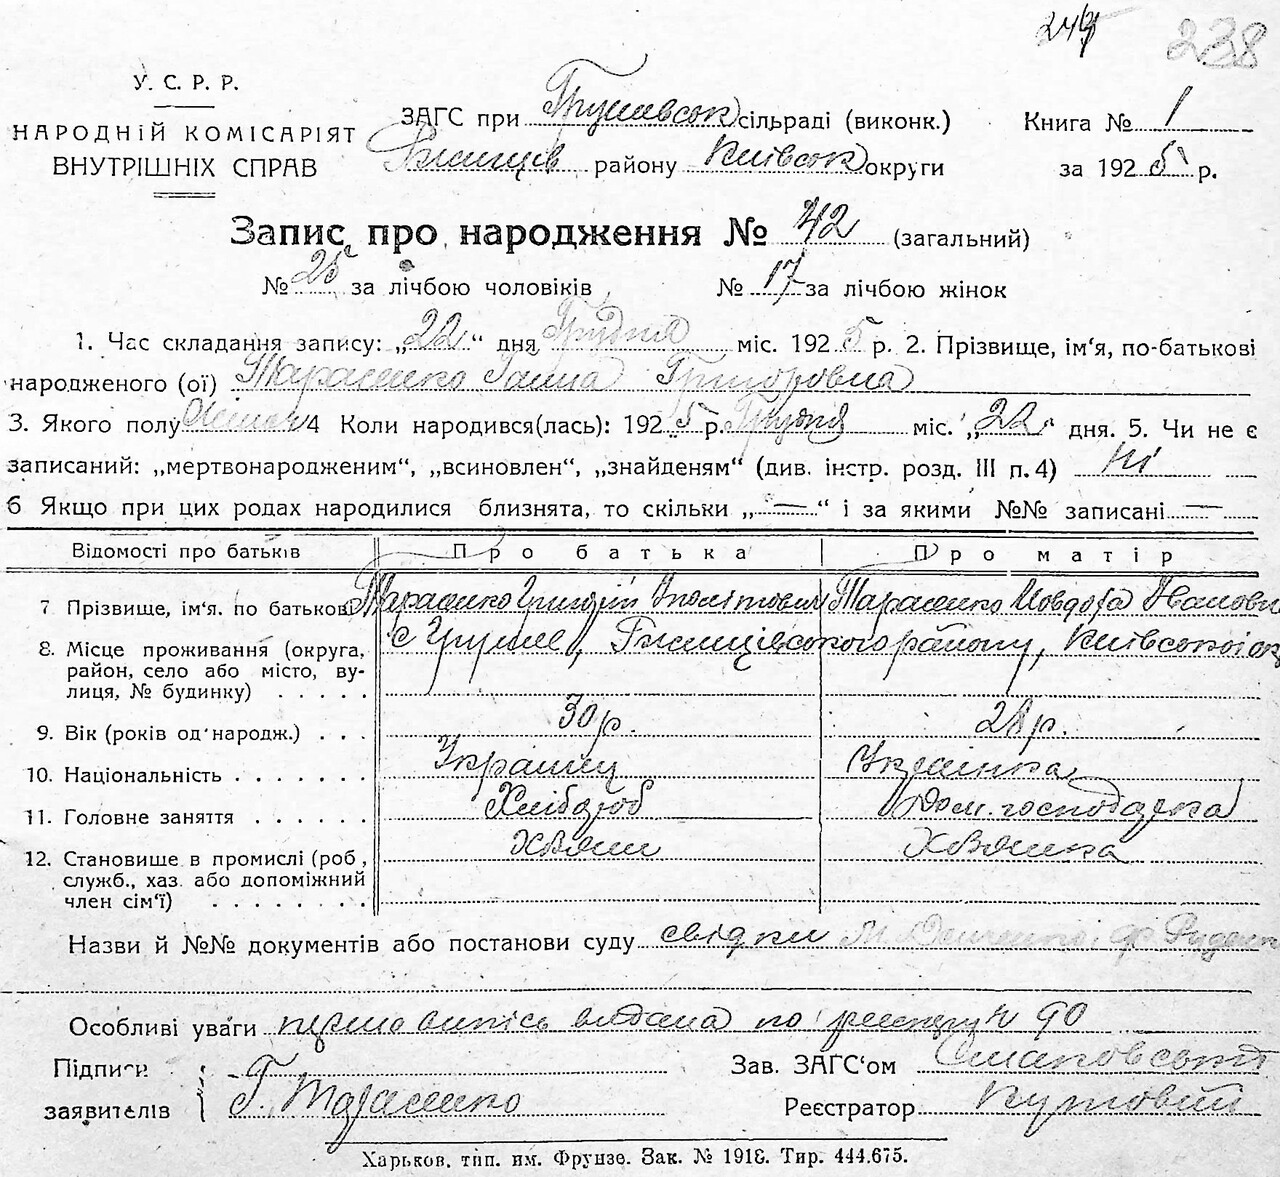 238
У. С. Р. Р.
НАРОДНІЙ КОМІСАРІЯТ
ВНУТРІШНІХ СПРАВ
ЗАГС при Грушевськ сільраді (виконк.)
району Київськ округи
Книга № 1
за 1925 р.
Запис про народження № 42 (загальний)
№ 25 за лічбою чоловіків № 17 за лічбою жінок
1. Час складання запису: „22“ дня Грудня міс. 1925 р. 2. Прізвище, ім'я, по-батькові
народженого (ої) Тарасенко Ганна Григоровна
3. Якого полу 4 Коли народився(лась): 1925 р. Грудня міс. „22“ дня. 5. Чи не є
записаний: „мертвонародженим“, „всиновлен“, „знайденям“ (див. інстр. розд. III п. 4) Ні
6 Якщо при цих родах народилися близнята, то скільки „—“ і за якими №№ записані —
Відомості про батьків Про батька Про матір
7 Прізвище, ім'я. по батькові Тарасенко Григорій Тарасенко Ивановн
8. Місце проживання (округа, район, село або місто, вулиця, № будинку) району, Київської ок
9. Вік (років од народж.) 30 р. 28 р.
10. Національність Українец Українка
11. Головне заняття Хлібороб Дом. господарка
12. Становище в промислі (роб, служб., хаз. або допоміжний член сім'ї)
Назви й №№ документів або постанови суду свідки
Особливі уваги видана по реестру № 90
Підписи заявителів Г. Тарасенко
Зав. ЗАГС'ом
Реєстратор Кутовий
Харьков, тип. им. Фрунзе. Зак. № 1918. Тир. 444.675.